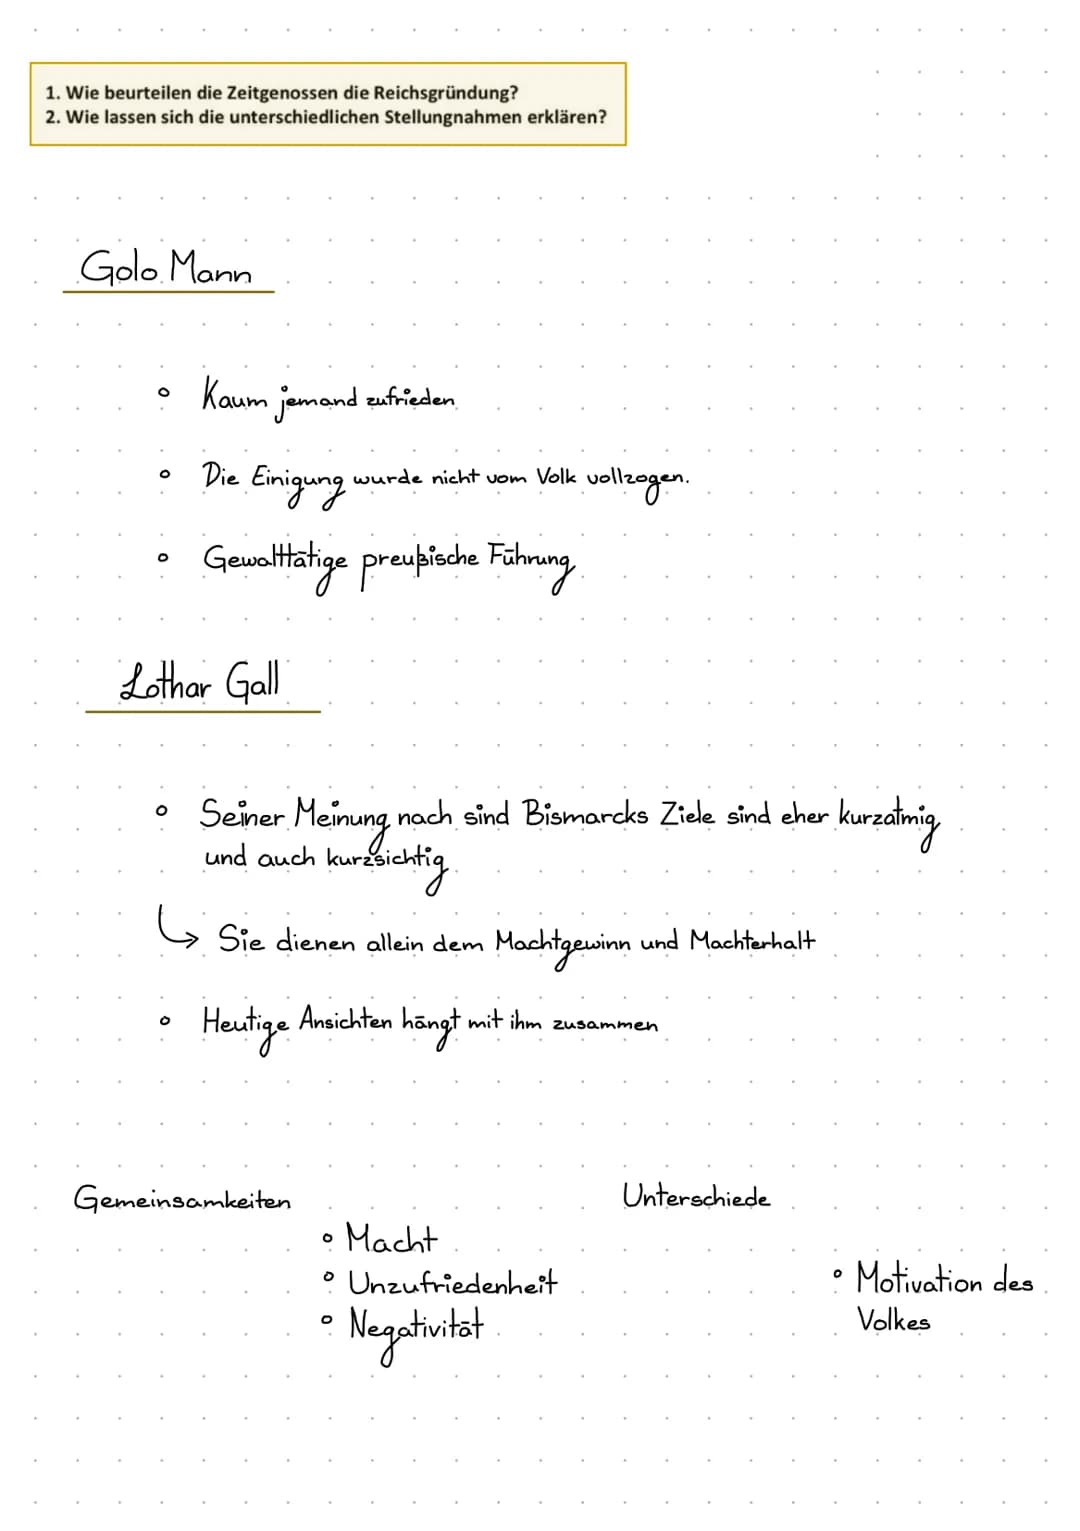 1. Wie beurteilen die Zeitgenossen die Reichsgründung?
2. Wie lassen sich die unterschiedlichen Stellungnahmen erklären?
Golo Mann
• Kaum jemand zufrieden
• Die Einigung wurde nicht vom Volk vollzogen.
• Gewalttätige preußische Führung
Lothar Gall
• Seiner Meinung nach sind Bismarcks Ziele sind eher kurzatmig
und auch kurzsichtig
↳ Sie dienen allein dem Machtgewinn und Machterhalt
• Heutige Ansichten hängt mit ihm zusammen
Gemeinsamkeiten
• Macht
• Unzufriedenheit
• Negativität
Unterschiede
• Motivation des
Volkes